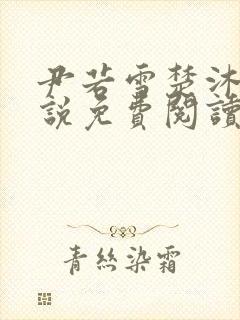 尹若雪楚沐
說免費閱讀
青絲染霜